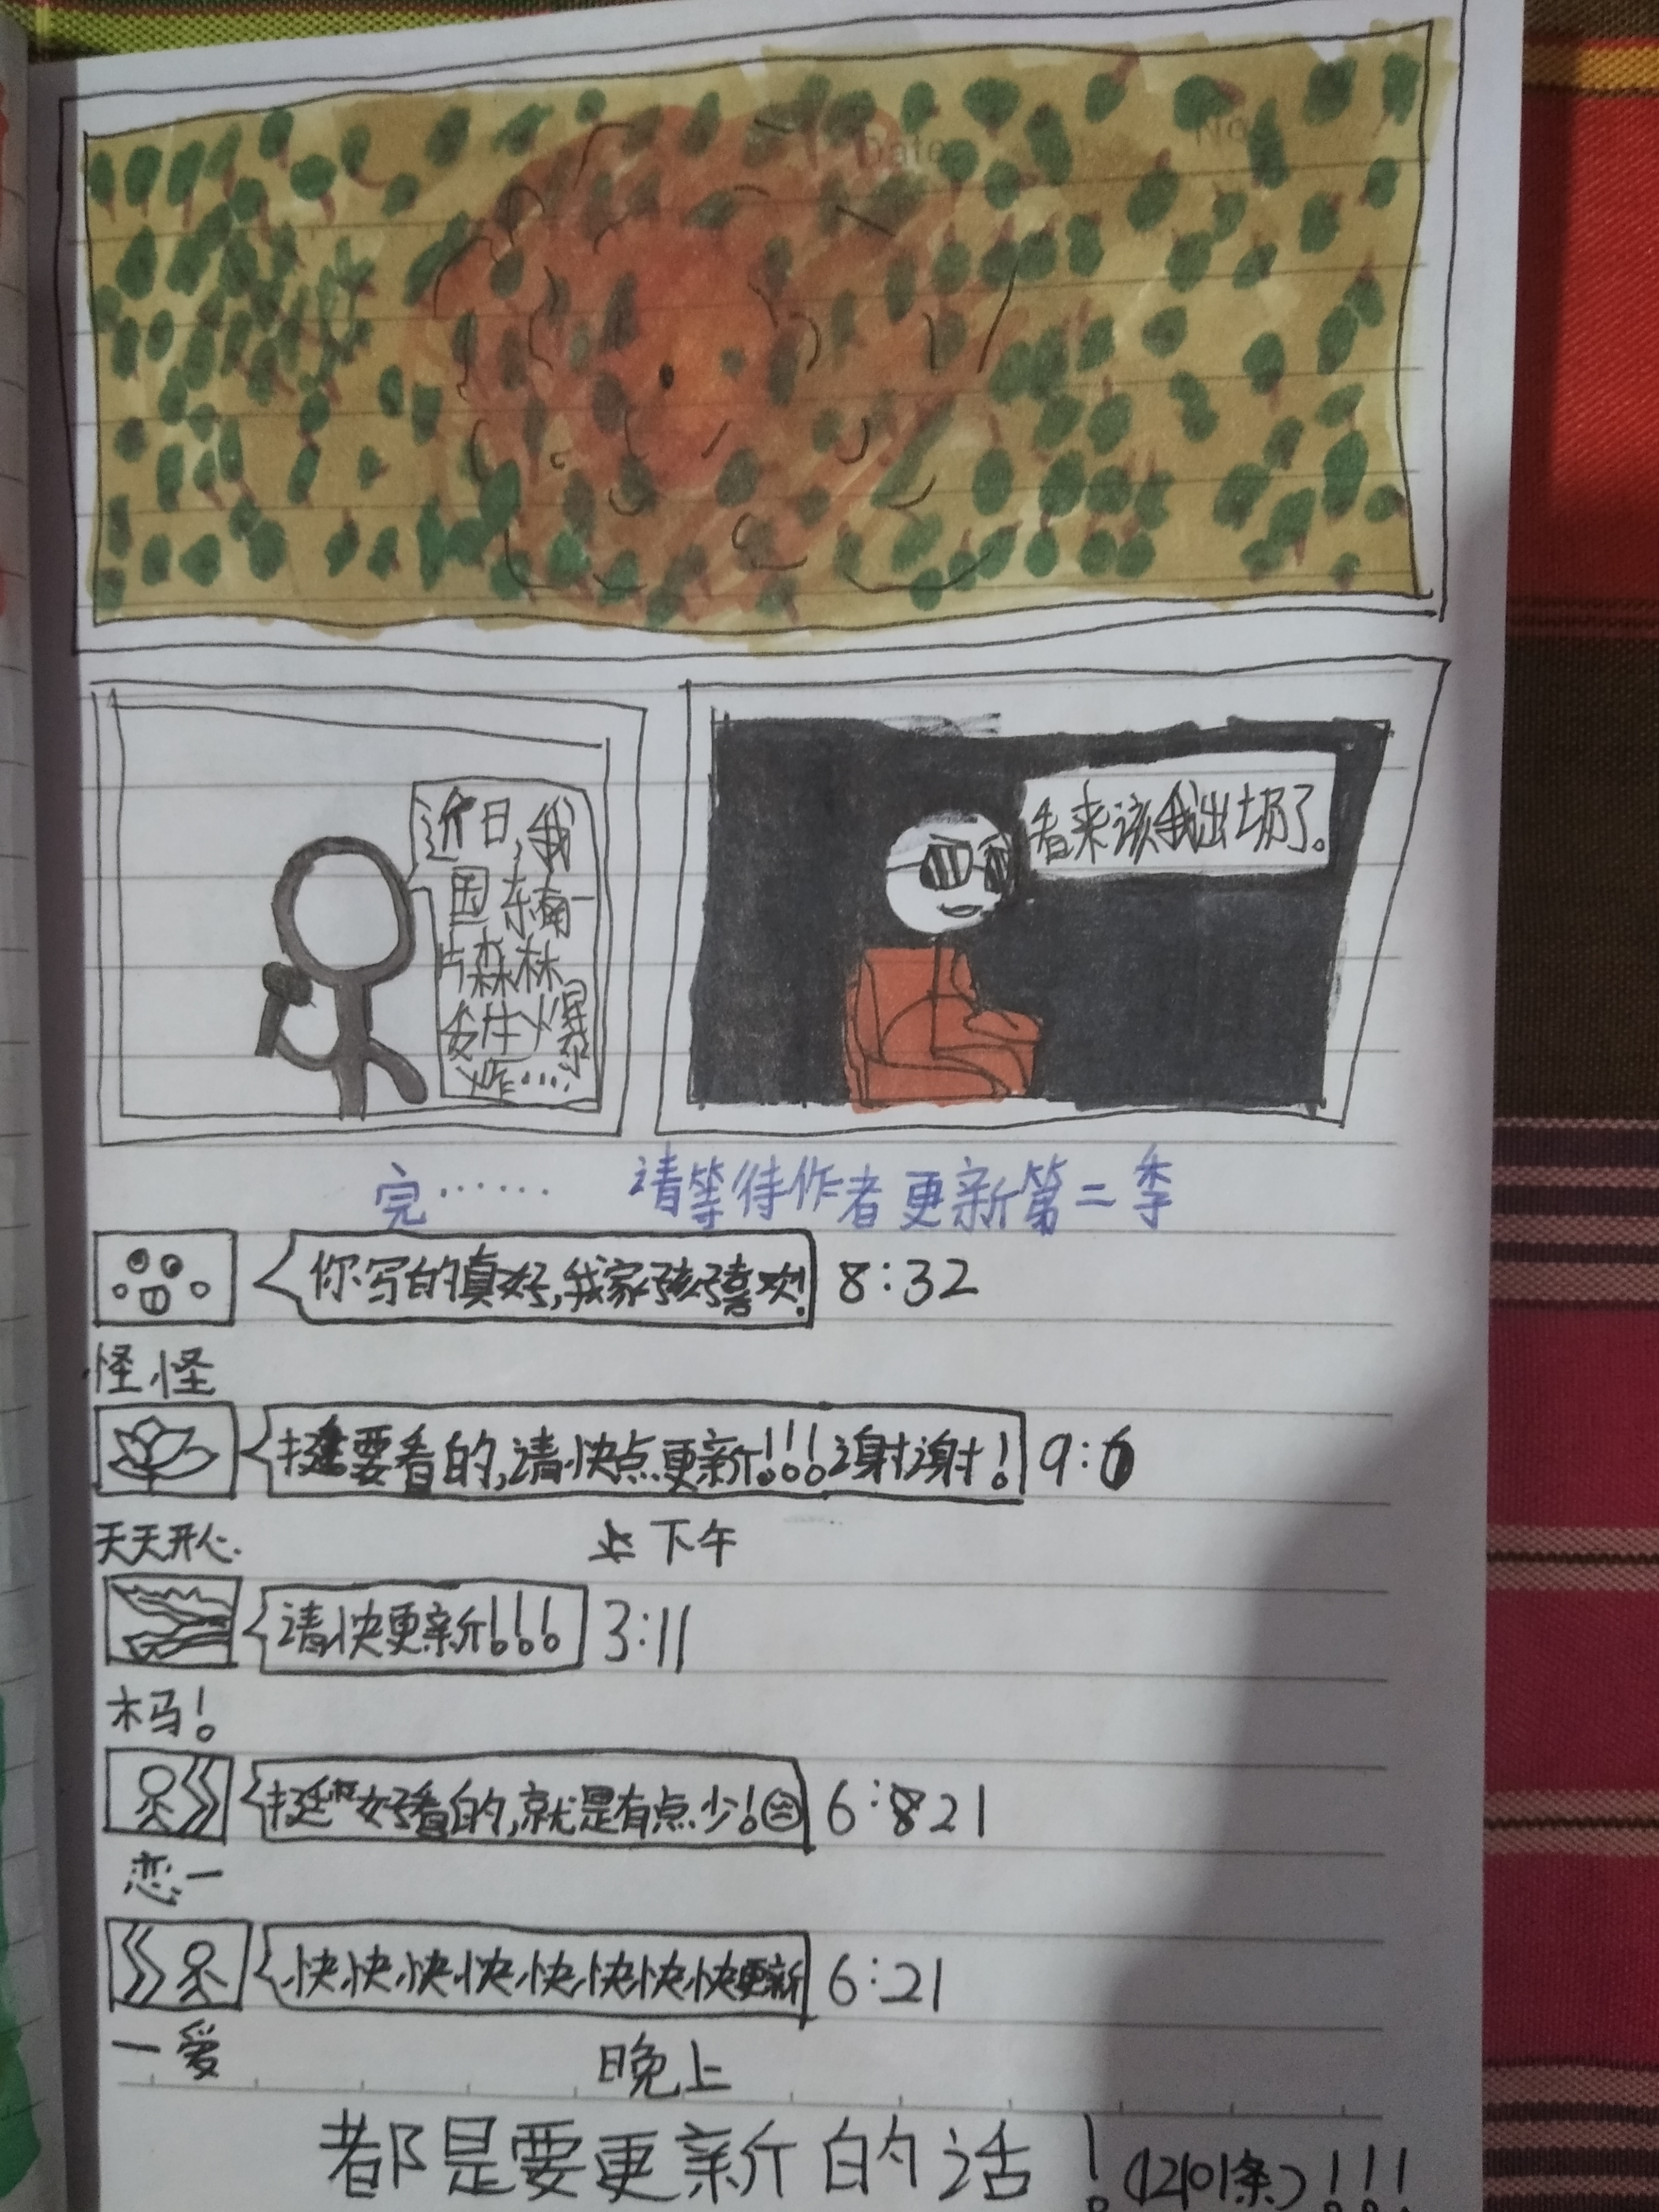 Date
No
近日,我
国东南一
片森林
发生爆
炸……
看来该我出场了。
完…… 请等待作者更新第二季
你写的真好,我家孩子喜欢! 8:32
怪怪
挺要看的,请快点更新!!!谢谢! 9:
天天开心 下午
请快更新!!! 3:11
木马!
挺好看的,就是有点少! 6:821
恋一
快快快快快快快快更新 6:21
一爱 晚上
都是要更新的话!(1201条)!!!